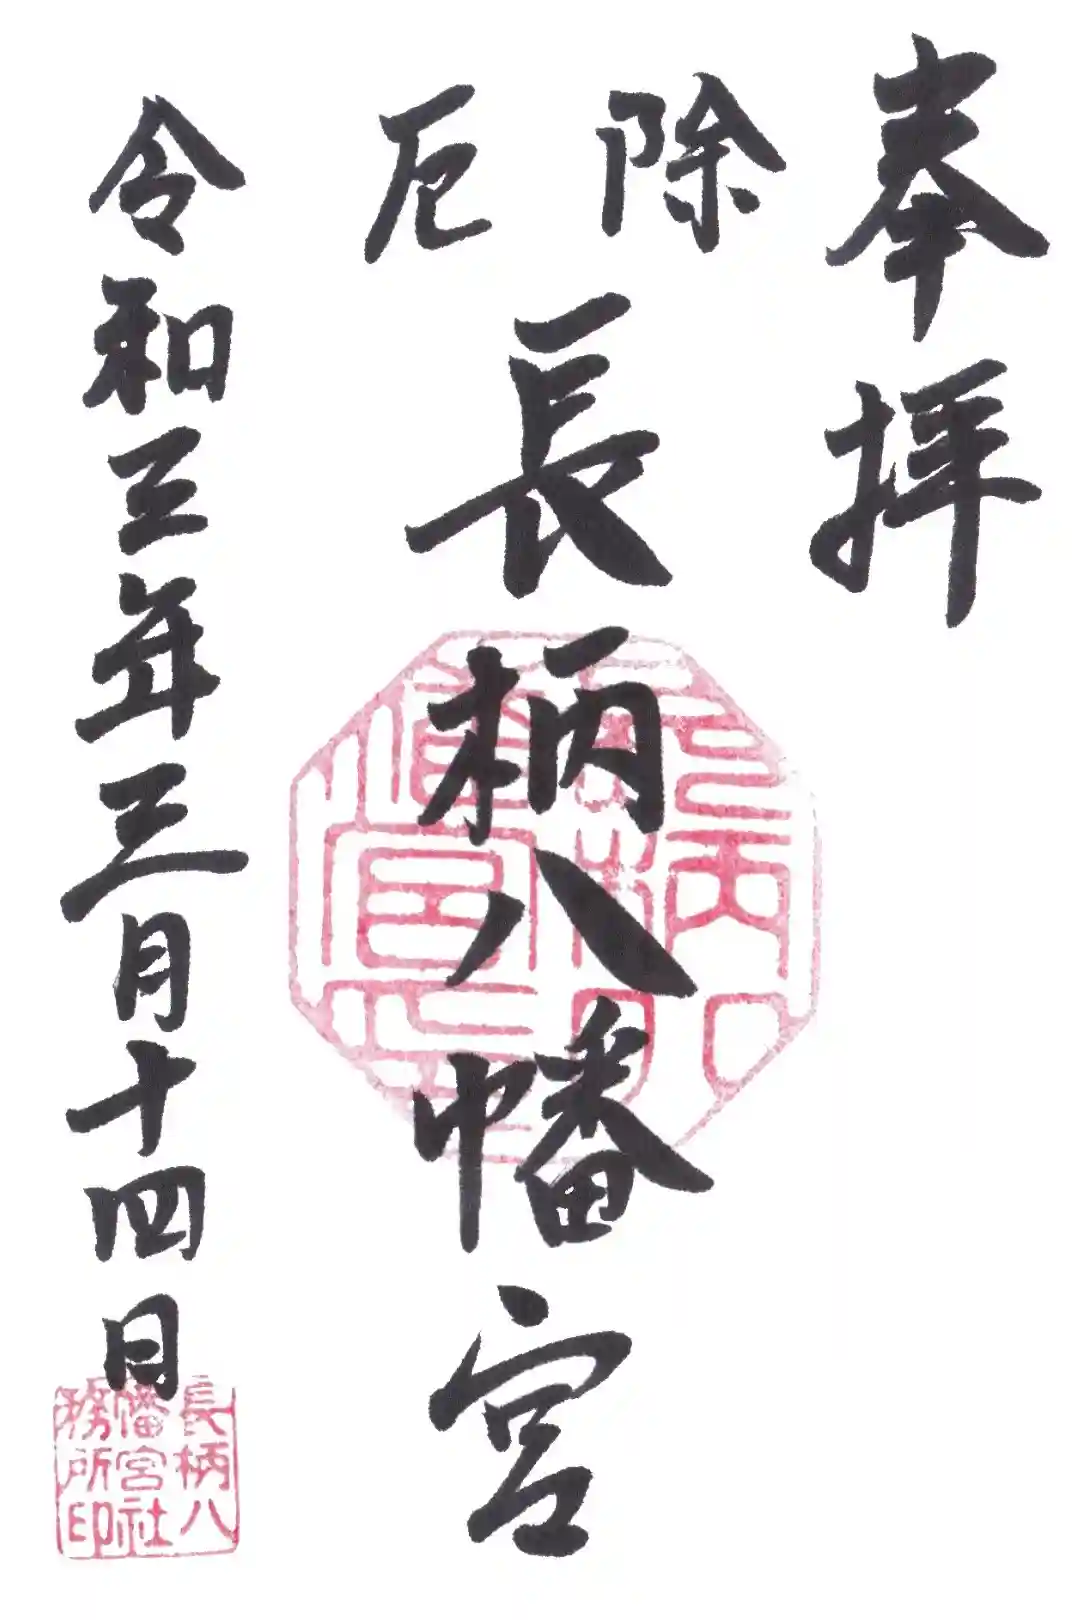 奉拝
除厄
長柄八幡宮
令和三年三月十四日
長柄八
幡宮社
務所印